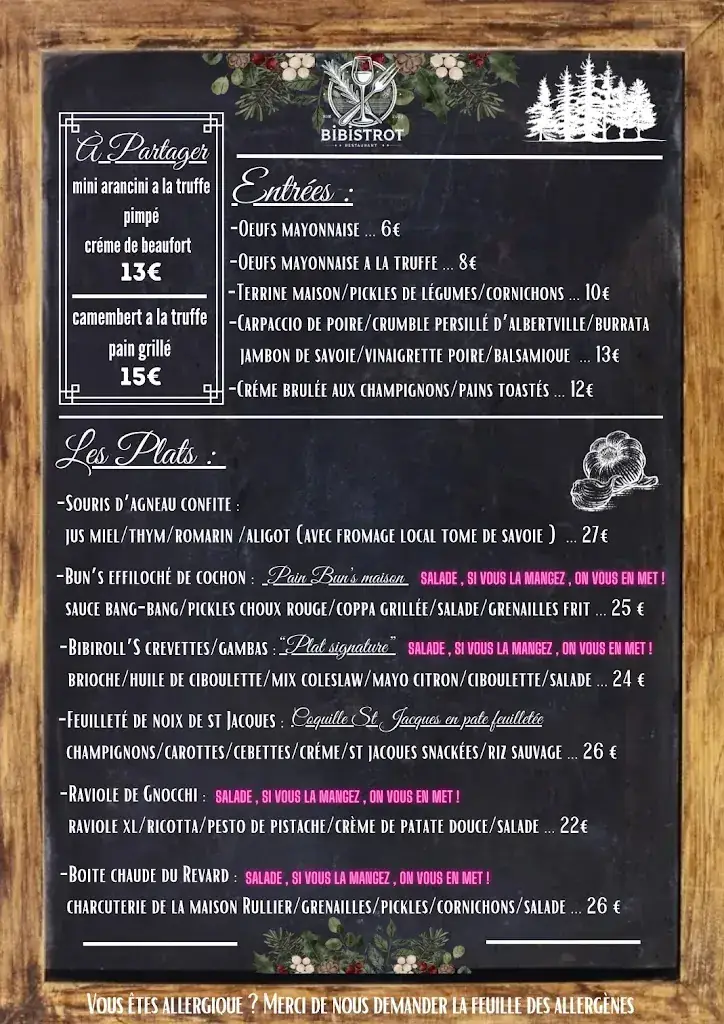 BİBİSTROT
RESTAURANT
À Partager
mini arancini a la truffe
pimpé
créme de beaufort
13€
camembert a la truffe
pain grillé
15€
Entrées :
-Oeufs mayonnaise ... 6€
-Oeufs mayonnaise a la truffe ... 8€
-Terrine maison/pickles de légumes/cornichons ... 10€
-Carpaccio de poire/crumble persillé d'albertville/burrata
jambon de savoie/vinaigrette poire/balsamique ... 13€
-Créme brulée aux champignons/pains toastés ... 12€
Les Plats :
-Souris d'agneau confite :
jus miel/thym/romarin /aligot (avec fromage local tome de savoie ) ... 27€
-Bun's effiloché de cochon : Pain Bun's maison SALADE , SI VOUS LA MANGEZ , ON VOUS EN MET !
sauce bang-bang/pickles choux rouge/coppa grillée/salade/grenailles frit ... 25 €
-Bibiroll'S crevettes/gambas : "Plat signature" SALADE , SI VOUS LA MANGEZ , ON VOUS EN MET !
brioche/huile de ciboulette/mix coleslaw/mayo citron/ciboulette/salade ... 24 €
-Feuilleté de noix de st Jacques : Coquille St Jacques en pate feuilletée
champignons/carottes/cebettes/créme/st jacques snackées/riz sauvage ... 26 €
-Raviole de Gnocchi : SALADE , SI VOUS LA MANGEZ , ON VOUS EN MET !
raviole xl/ricotta/pesto de pistache/crème de patate douce/salade ... 22€
-Boite chaude du Revard : SALADE , SI VOUS LA MANGEZ , ON VOUS EN MET !
charcuterie de la maison Rullier/grenailles/pickles/cornichons/salade ... 26 €
Vous êtes allergique ? Merci de nous demander la feuille des allergènes